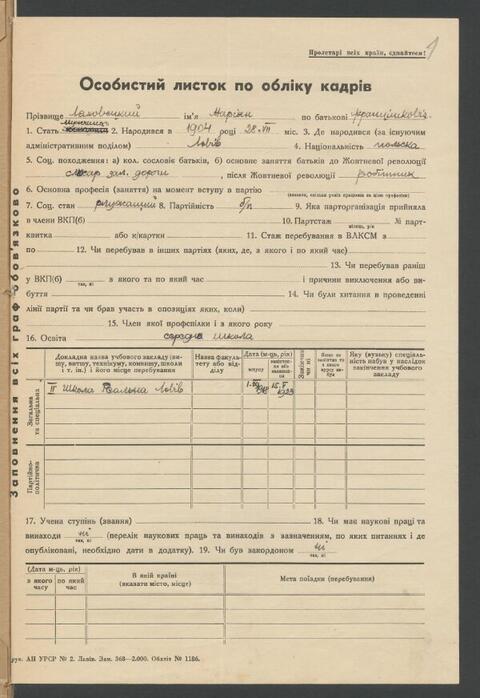 Пролетарі всіх країн, єднайтеся! 1
Особистий листок по обліку кадрів
Прізвище Ляховецкий ім'я Мар'ян по батькові
1. Стать мужчина 2. Народився в 1904 році 28.VII міс. 3. Де народився (за існуючим
адміністративним поділом) Львів 4. Національність польска
5. Соц. походження: а) кол. сословіє батьків, б) основне заняття батьків до Жовтневої революції
слюсар зал. дороги, після Жовтневої революції робітник
6. Основна професія (заняття) на момент вступу в партію
7. Соц. стан служащий 8. Партійність б/п 9. Яка парторганізація прийняла
в члени ВКП(б) 10. Партстаж № парт-
місяць, рік
квитка або к/картки 11. Стаж перебування в ВЛКСМ з
по 12. Чи перебував в інших партіях (яких, де, з якого і по який час)
13. Чи перебував раніш
у ВКП(б) з якого та по який час і причини виключення або ви-
так, ні
буття 14. Чи були хитання в проведенні
лінії партії та чи брав участь в опозиціях яких, коли)
15. Член якої профспілки і з якого року
16. Освіта середна школа
Заповнення всіх граф обов'язково
Докладна назва учбового закладу (ви-
шу, втишу, технікуму, комвишу, школи
і т. ін.) і його місце перебування
Назва факуль-
тету або від-
ділу
Дата (м-ць, рік)
вступу
Закінчив
чи ні
Яку (вузьку) спеціаль-
ність набув у наслідок
закінчення учбового
закладу
Загальна
та спеціальна
II Школа Реальна Львів 15.V 1923
Партійно-
політична
17. Учена ступінь (звання) 18. Чи має наукові праці та
винаходи ні (перелік наукових праць та винаходів з зазначенням, по яких питаннях і де
так, ні
опубліковані, необхідно дати в додатку). 19. Чи був закордоном ні
так, ні
(Дата м-ць, рік)
з якого
часу
по який
час
В якій країні
(вказати місто, місце)
Мета поїздки (перебування)
рук. АН УРСР № 2. Львів. Зам. 368—2.000. Обліт № 1186.